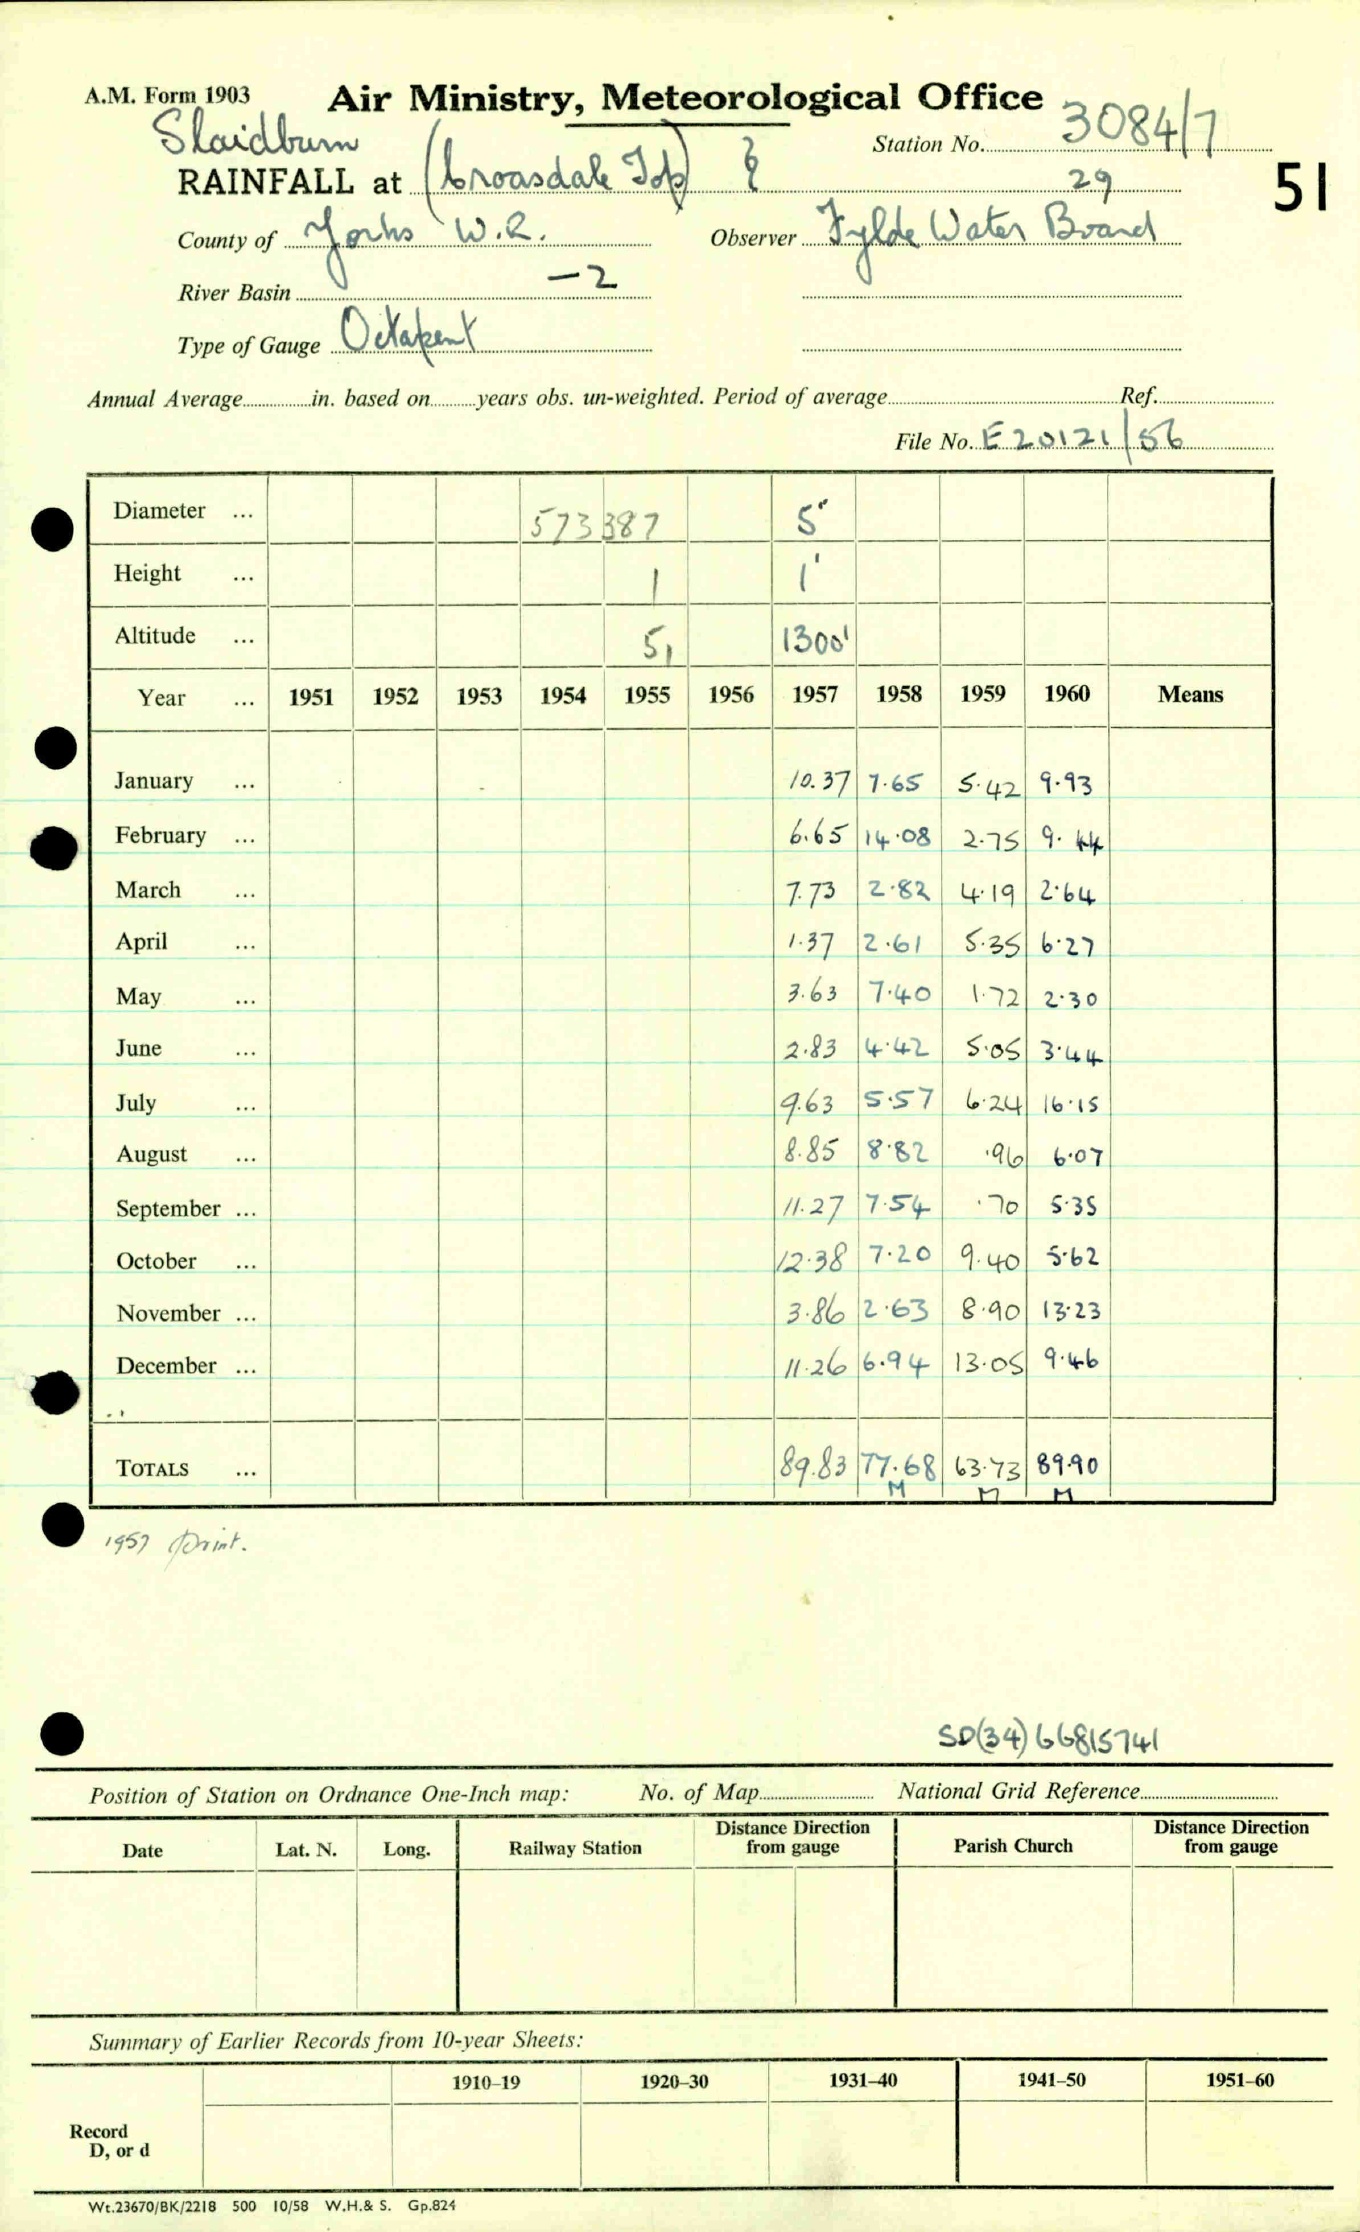 A.M. Form 1903 Air Ministry, Meteorological Office
Slaidburn Station No. 3084/7
RAINFALL at (Croasdale Top) 29 51
County of Yorks W.R. Observer Fylde Water Board
River Basin —2
Type of Gauge Octapent
Annual Average in. based on years obs. un-weighted. Period of average Ref.
File No. E20121/56
Diameter ... 573387 5"
Height ... 1 1'
Altitude ... 51 1300'
Year ... 1951 1952 1953 1954 1955 1956 1957 1958 1959 1960 Means
January ... 10.37 7.65 5.42 9.93
February ... 6.65 14.08 2.75 9.44
March ... 7.73 2.82 4.19 2.64
April ... 1.37 2.61 5.35 6.27
May ... 3.63 7.40 1.72 2.30
June ... 2.83 4.42 5.05 3.44
July ... 9.63 5.57 6.24 16.15
August ... 8.85 8.82 .96 6.07
September ... 11.27 7.54 .70 5.35
October ... 12.38 7.20 9.40 5.62
November ... 3.86 2.63 8.90 13.23
December ... 11.26 6.94 13.05 9.46
TOTALS ... 89.83 77.68 63.73 89.90
M M M
1957 print.
SD(34)66815741
Position of Station on Ordnance One-Inch map: No. of Map National Grid Reference
Date Lat. N. Long. Railway Station Distance Direction from gauge Parish Church Distance Direction from gauge
Summary of Earlier Records from 10-year Sheets:
1910–19 1920–30 1931–40 1941–50 1951–60
Record
D, or d
Wt.23670/BK/2218 500 10/58 W.H.& S. Gp.824